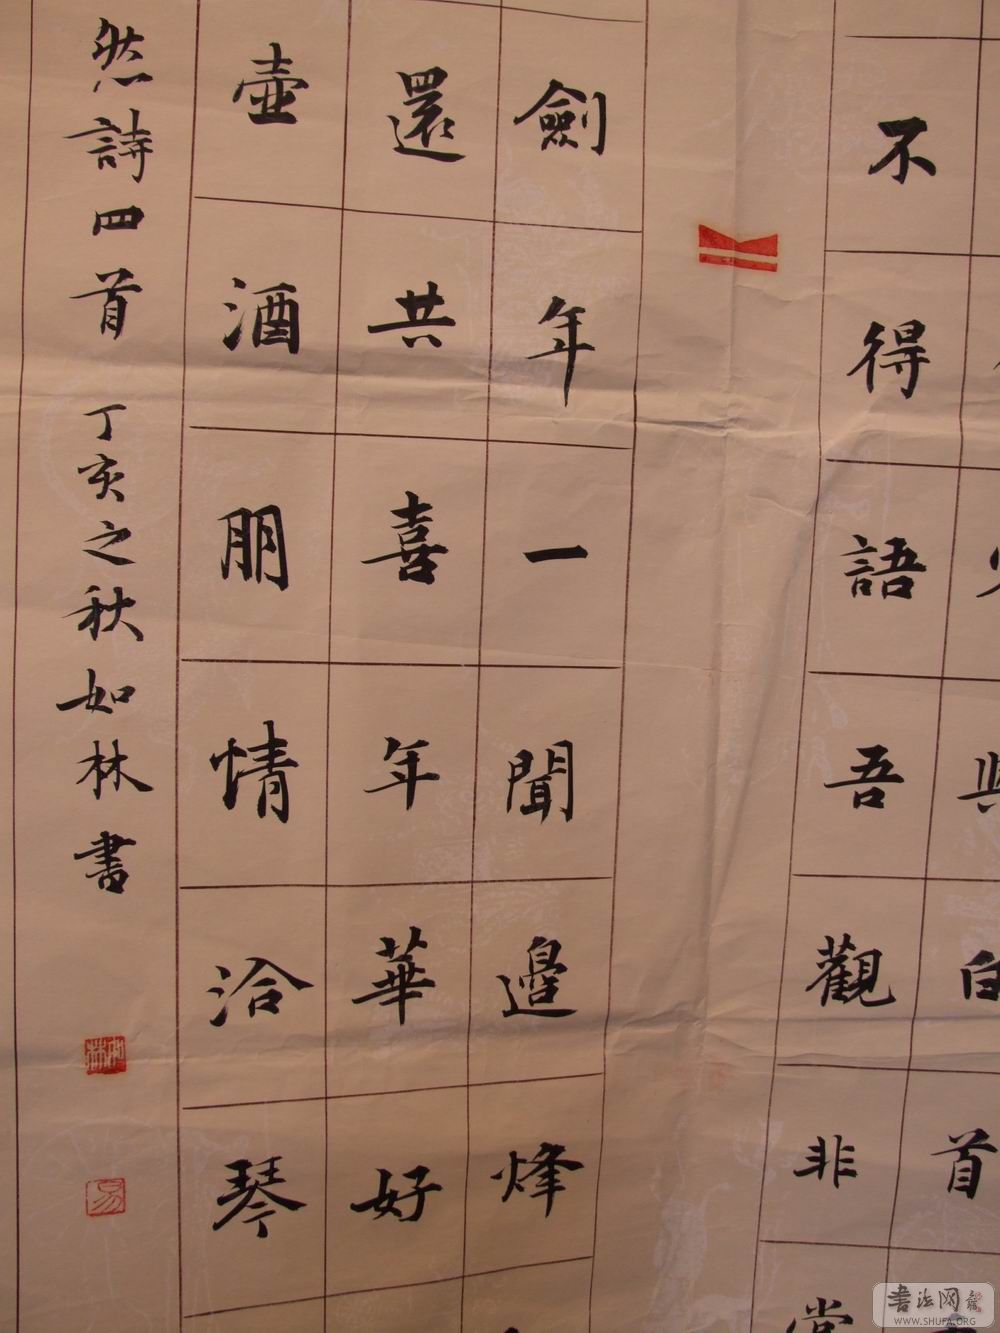 首
不得語吾觀非常
劍年一聞邊烽
還共喜年華好
壺酒朋情洽琴
然詩四首 丁亥之秋如林書
如林
易
書法网
WWW.SHUFA.ORG